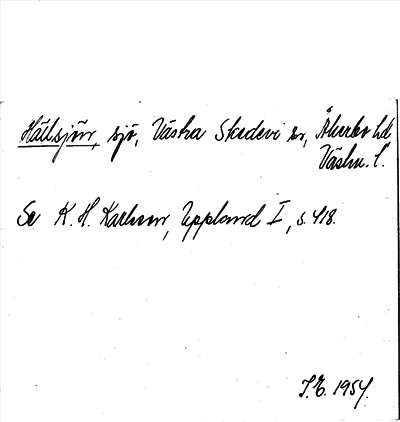 Hällsjön, sjö, Västra Skedvi sn, Åkerbo hd
Västm. l.
Se K. H. Karlsson, Uppland I, s. 418.
J.E. 1954.